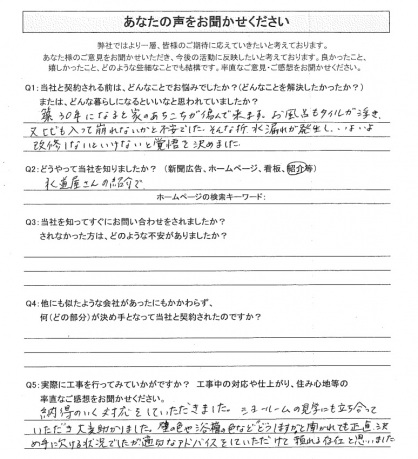 あなたの声をお聞かせください
弊社ではより一層、皆様のご期待に応えていきたいと考えております。
あなた様のご意見をお聞かせいただき、今後の活動に反映したいと考えております。良かったこと、
嬉しかったこと、どのような些細なことでも結構です。率直なご意見・ご感想をお聞かせください。
Q1:当社と契約される前は、どんなことでお悩みでしたか?(どんなことを解決したかったか?)
または、どんな暮らしになるといいなと思われていましたか?
築30年になると家のあちこちが傷んで来ます。お風呂もタイルが浮き、
ヒビも入って崩れないかと不安でした。そんな折、水漏れが発生し、いよいよ
改修しないといけないと覚悟を決めました。
Q2:どうやって当社を知りましたか? (新聞広告、ホームページ、看板、紹介等)
水道屋さんの紹介で
ホームページの検索キーワード:
Q3:当社を知ってすぐにお問い合わせをされましたか?
されなかった方は、どのような不安がありましたか?
Q4:他にも似たような会社があったにもかかわらず、
何(どの部分)が決め手となって当社と契約されたのですか?
Q5:実際に工事を行ってみていかがですか? 工事中の対応や仕上がり、住み心地等の
率直なご感想をお聞かせください。
納得のいく対応をしていただきました。ショールームの見学にも立ち会って
いただき大変助かりました。壁の色や浴槽の色などどうしますかと聞かれても正直決
め手に欠ける状況でしたが適切なアドバイスをしていただけて頼れる存在と思いました